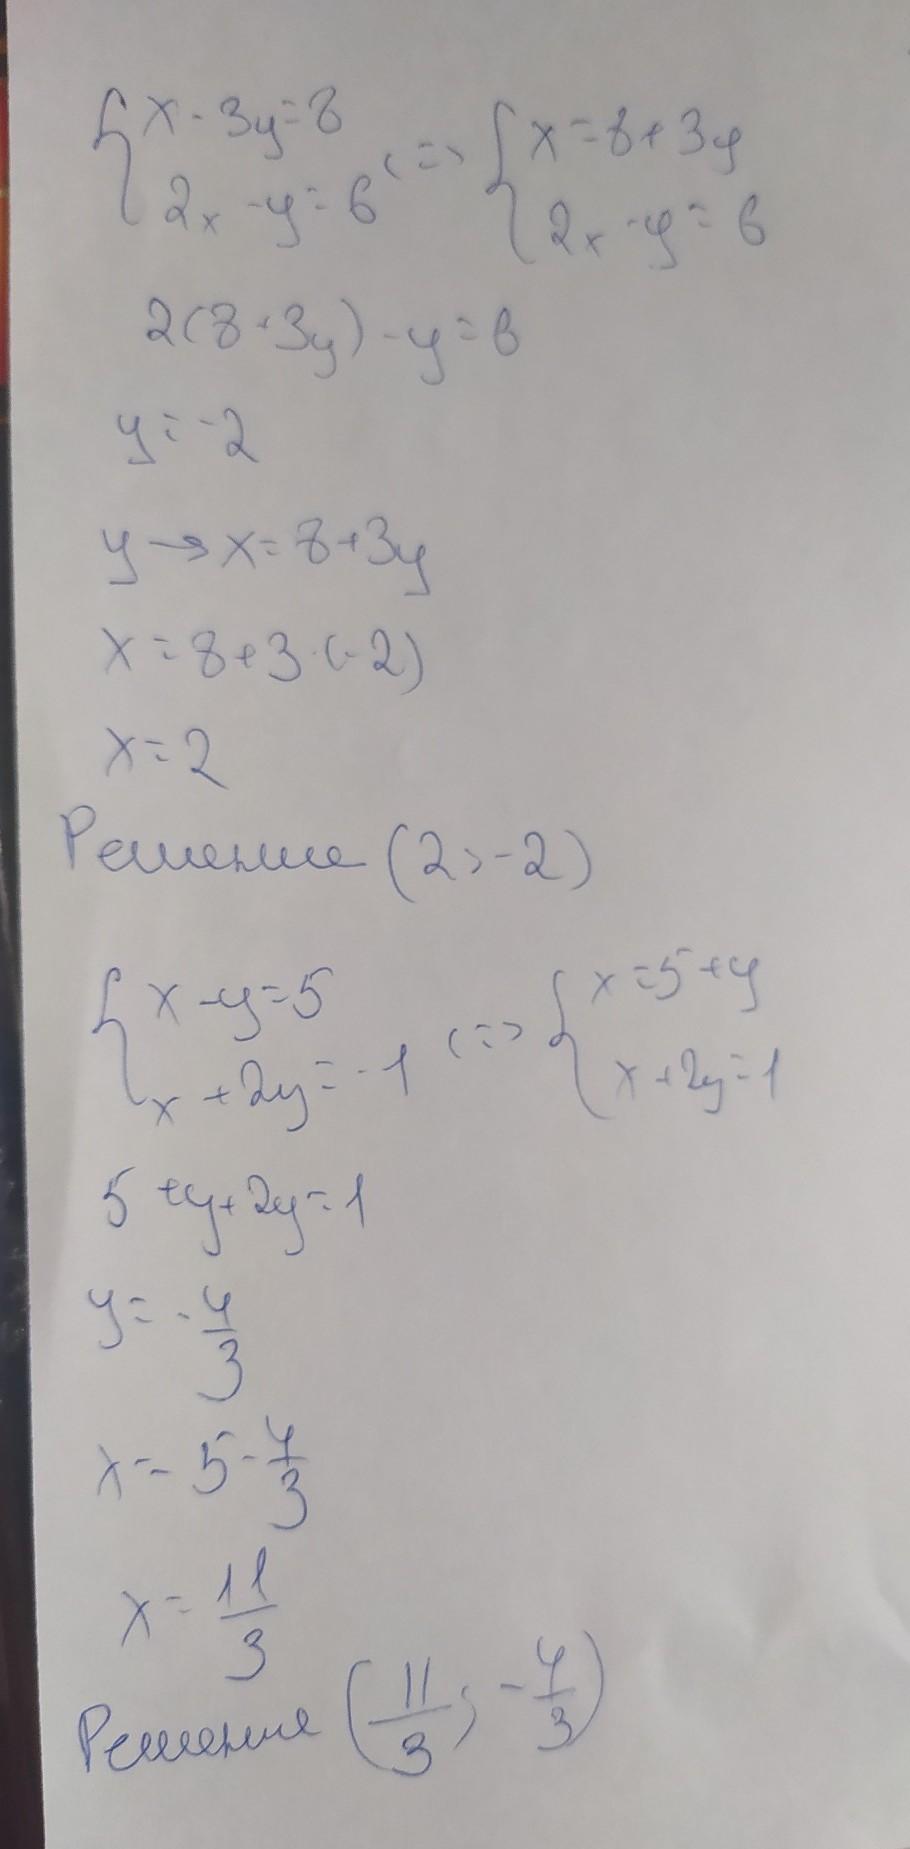 { x - 3y = 8 <=> { x = 8 + 3y
2x - y = 6 2x - y = 6
2(8 + 3y) - y = 6
y = -2
y → x = 8 + 3y
x = 8 + 3·(-2)
x = 2
Решение (2; -2)
{ x - y = 5 <=> { x = 5 + y
x + 2y = -1 x + 2y = 1
5 + y + 2y = 1
y = -4/3
x = 5 - 4/3
x = 11/3
Решение (11/3; -4/3)